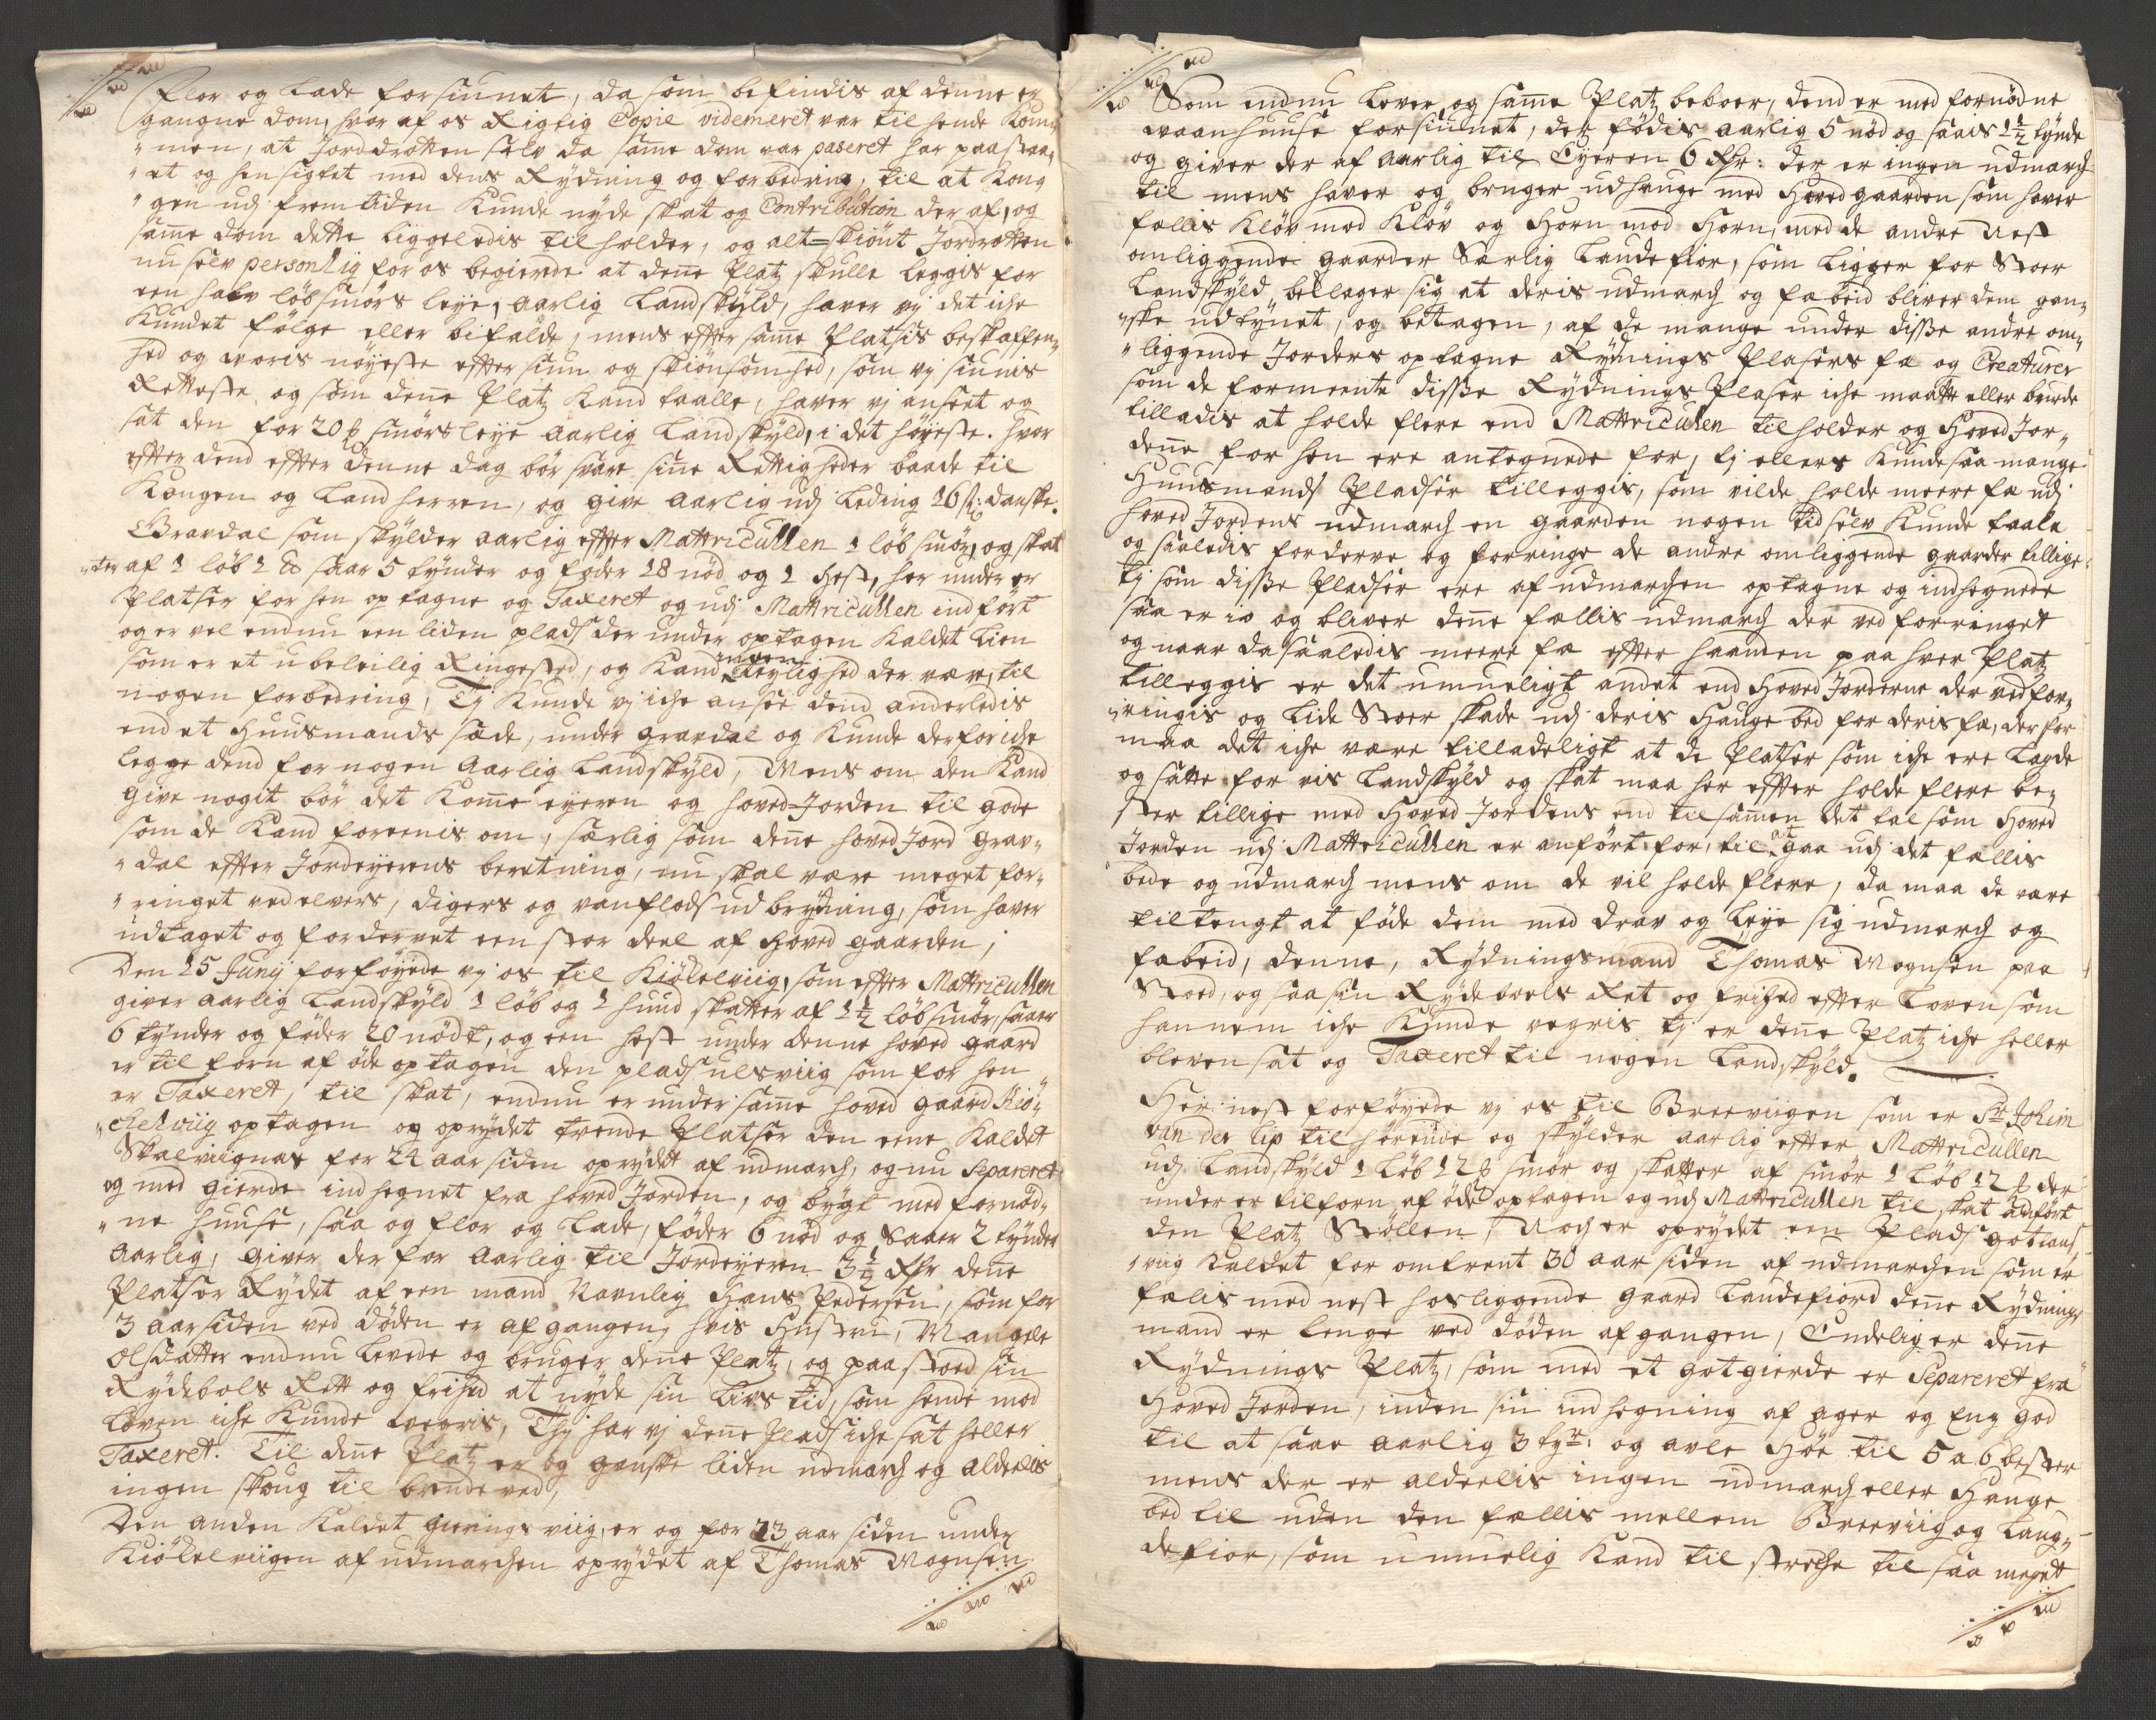 Flor og Lade forsiunet, da som befindis af denne er
gangne dom, hvor af os Rigtig Copie videmeret var til hende kom¬
"men, at Jorddrotten selv da same dom var paseret har paa staa¬
"et og hen sigtet med dens Rydning og forbedring, til at Kong
"gen udj fremtiden Kunde nyde skat og Contribution der af, og
same dom dette liggeledis tilholder, og alt=skiønt Jordrotten
nu selv personlig for os begierde at dene Platz skulle leggis for
een halv løb smørs leye, aarlig Landskyld, haver vj det iche
Kundet følge eller bifalde, mens effter same Platsis beskaffen¬
hed og woris nøyeste efftersiun og skiønsomhed, som vj siunis
Retteste, og som dene Platz Kand taalle, haver vj anseet og
sat den for 20 ℔ smørs leye aarlig Landskyld, i det høyeste. hvor
effter dend effter denne dag bør svare sine Rettigheder baade til
Kongen og Landherren, og give aarlig udj Leding 16 s: danske.
Gravdal som skylder aarlig effter Matriculen 1 løb smør, og skat
"ter af 1 løb 1 ℔ saar 5 tynder og føder 18 nød og 1 Hest, her under er
Platser for hen optagne og Taxeret og udj Matricullen indført
og er vel endnu een liden plads der under optagen Kaldet Lien
som er et ubeleilig Ringested, og Kand ingen Leylighed der være, til
nogen forbedring, Tj Kunde vj iche ansee dend anderledis
end et Huusmands sæde, under gravdal og Kunde derfor iche
legge dend for nogen aarlig Landskyld, Mens om den Kand
give nogit bør det Kome eyeren og hoved=Jorden til gode
som de Kand foreenis om, særlig som dene hoved Jord Grav¬
"dal effter Jordeyerens beretning, nu skal være meget for¬
"ringet ved elvers, digers og vanflods udbrydning, som haver
udtaget og fordervet een stor deel af Hovedgaarden,
Den 15 Junij forføyede vj os til Kiøkelviig, som effter Matricullen
giver aarlig Landskyld 1 løb og 1 hund skatter af 1½ løb smør, saaer
6 tynder og føder 20 nødt, og een hest under denne hoved gaard
er til forn af øde optagen den plads ulsviig som for hen
er Taxeret, til skat, endnu er under same hoved gaard Kiø¬
"chelviig optagen og oprydet tvende Platser den eene Kaldet
Skalviignæs for 24 aar siden oprydet af udmarch, og nu Separeret
og med gierde indhegnet fra hoved Jorden, og bygt med fornød¬
"ne huuse, saa og flor og Lade, føder 6 nød og Saaer 2 tynder
aarlig, giver der for aarlig til Jordeyeren 3½ Rdr dene
Platser Rydet af een mand Navnlig Hans Pedersen, som for
3 aar siden ved døden er afgangen, hvis Hustru, Mangele
Olsdatter endnu Levede og bruger dene Platz, og paastoed sin
Rydebols Rett og frihed at nyde sin Livs tid, som hende mod
Loven iche Kunde wegris, Thj har vj dene Plads iche sat heller
Taxeret. Til dene Platz er og ganske liden udmarch og alderlis
ingen skoug til brendeved,
Den anden Kaldet gierings viig, er og for 23 aar siden under
Kiøkelviigen af udmarchen oprydet af Thomas Mognsen
Som endnu Lever, og same Platz beboer, dend er med fornødne
waanhuuse forsiunet, der fødis aarlig 5 nød og saais 1½ tynde
og giver der af aarlig til Eyeren 6 Rdr: der er ingen udmarch
til mens haver og bruger udhauge med Hovedgaarden som haver
fellis Kløv mod Kløv og Horn mod Horn, med de andre Nest
omliggende gaarder Særlig Laudefior, som ligger for Stoer
Landskyld, beklager sig at deris udmarch og fæbeid bliver dem gan¬
"ske udtynet, og betagen, af de mange under disse andre om¬
"liggende Jorders optagne Rydnings Plasers fæ og Creaturer
som de formeente disse Rydnings Plaser iche maatte eller burde
tilladis at holde flere end Matriculen tilholder og Hoved Jor¬
dene for hen ere antegnede for, tj ellers Kunde saa mange
Huusmands Pladser tilleggis, som vilde holde meere fæ udj
hoved Jordens udmarch en gaarden nogen tid selv Kunde taale
og saaledis forderve og forringe de andre omliggende gaarder tillige
tj som disse Pladser ere af udmarchen optagne og indhegnede
saa er io og bliver dene fællis udmarch der ved forringet
og naar da saaledis meere fæ effter haanden paa hver Platz
tilleggis er det umueligt andet end Hoved Jorderne der ved for¬
"ringis og lide Stoer skade udj deris Hauge bed for deris fæ, der for
maa det iche være tilladeligt at de Platser som iche ere lagde
og satte for vis Landskyld og skat maa her effter holde flere be¬
ster tillige med Hoved Jordens end tilsamen det tal som Hoved
Jorden udj Matricullen er anført for, til at gaa udj det fællis
bede og udmarch mens om de vil holde flere, da maa de være
tiltengt at føde dem med Drav og Leye sig udmarch og
fæbeid, denne, Rydningsmand Thomas Mognsen paa
Stoed, og saa sin Rydeboels Ret og frihed effter Loven som
hannem iche Kunde vegris tj er dene Platz iche heller
bleven sat og Taxeret til nogen Landskyld.
Her nest forføyede vj os til Breeviigen som er Sr Johan
van der Lip tilhørende og skylder aarlig effter Matricullen
udj Landskyld 1 Løb 12 ℔ smør og skatter af smør 1 Løb 12 ℔ der
under er tilforn af øde optagen og udj Matricullen til skat anført
den Platz Støllen, Noch er oprydet een Plads gotlaus¬
"viig Kaldet for omtrent 30 aar siden af udmarchen som er
fælis med nest hosliggende gaard Laudefiord dene Rydnings
mand er lenge ved døden afgangen, Endelig er dene
Rydnings Platz, som med et got gierde er Separeret fra
Hoved Jorden, inden sin indhegning af ager og Eng god
til at saae aarlig 3 tyr: og avle Høe til 5 a 6 bester
mens der er alderlis ingen udmarch eller Hauge
bed til uden den fællis mellem Breeviig og Laug¬
defior, som umuelig Kand til streche til saa meget